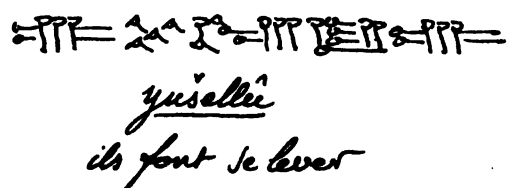 𒌑𒊺𒂖𒇻𒌑
yušellû
ils font se lever